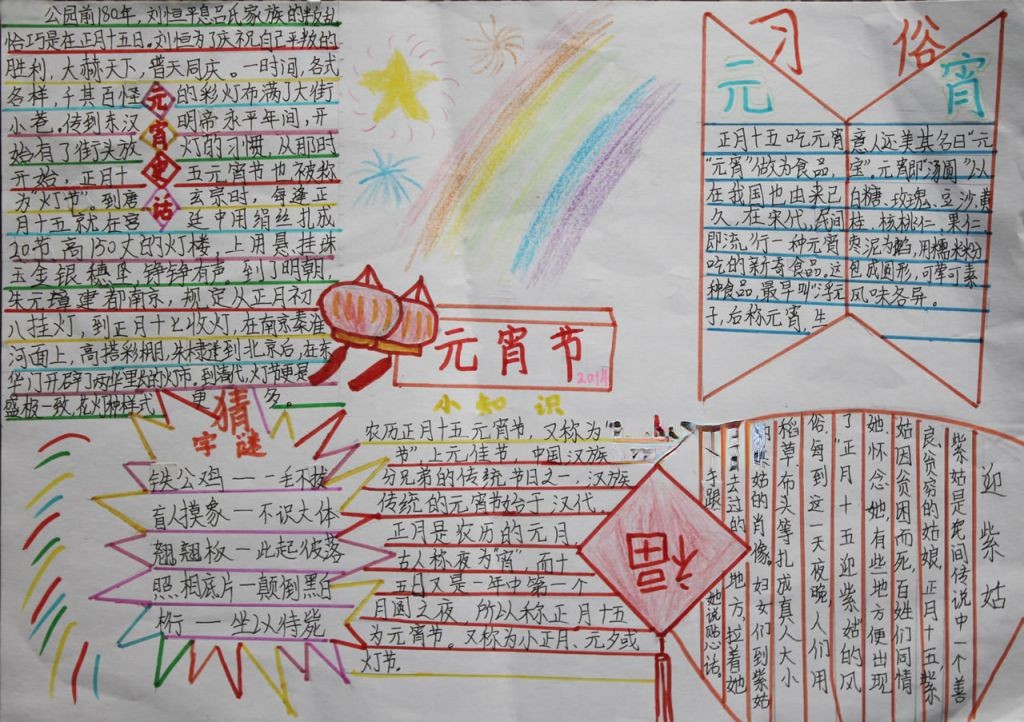 公园前180年,刘恒平息吕氏家族的叛乱
恰巧是在正月十五日。刘恒为了庆祝自己平叛的
胜利,大赦天下,普天同庆。一时间,各式
各样,千其百怪的彩灯布满了大街
小巷。传到东汉明帝永平年间,开
始有了街头放灯的习惯,从那时
开始,正月十五元宵节也被称
为“灯节”,到唐玄宗时,每逢正
月十五就在宫廷中用绢丝扎成
20节高150丈的灯楼,上用悬挂珠
玉金银穗坠,铮铮有声。到了明朝,
朱元璋建都南京,规定从正月初
八挂灯,到正月十七收灯,在南京秦淮
河面上,高搭彩棚,朱棣迁到北京后,在东
华门开辟了两华里长的灯市。到清代,灯节更是
盛极一致,花灯种样式更多。
元宵史话
元宵节
2014
习俗
元宵
正月十五吃元宵
“元宵”做为食品,
在我国也由来已
久,在宋代,民间
即流行一种元宵
吃的新奇食品,这
种食品,最早叫“浮元
子,后称元宵,生
意人还美其名曰“元
宝”。元宵即“汤圆”以
白糖、玫瑰、豆沙、黄
桂、核桃仁、果仁、
枣泥为馅,用糯米粉
包成圆形,可荤可素
风味各异。
猜
字谜
铁公鸡——一毛不拔
盲人摸象—不识大体
翘翘板—此起彼落
照相底片—颠倒黑白
桁—坐以待毙
小知识
农历正月十五元宵节,又称为“
节”,上元佳节,中国汉族
分兄弟的传统节日之一,汉族
传统的元宵节始于汉代。
正月是农历的元月,
古人称夜为“宵”,而十
五日又是一年中第一个
月圆之夜,所以称正月十五
为元宵节。又称为小正月、元夕或
灯节。
福
迎紫姑
紫姑是民间传说中一个善
良、贫穷的姑娘,正月十五,紫
姑因贫困而死,百姓们同情
她、怀念她,有些地方便出现
了“正月十五迎紫姑”的风
俗,每到这一天夜晚,人们用
稻草、布头等扎成真人大小
紫姑的肖像。妇女们到紫姑
去过的地方,拉着她
手跟她说贴心话。